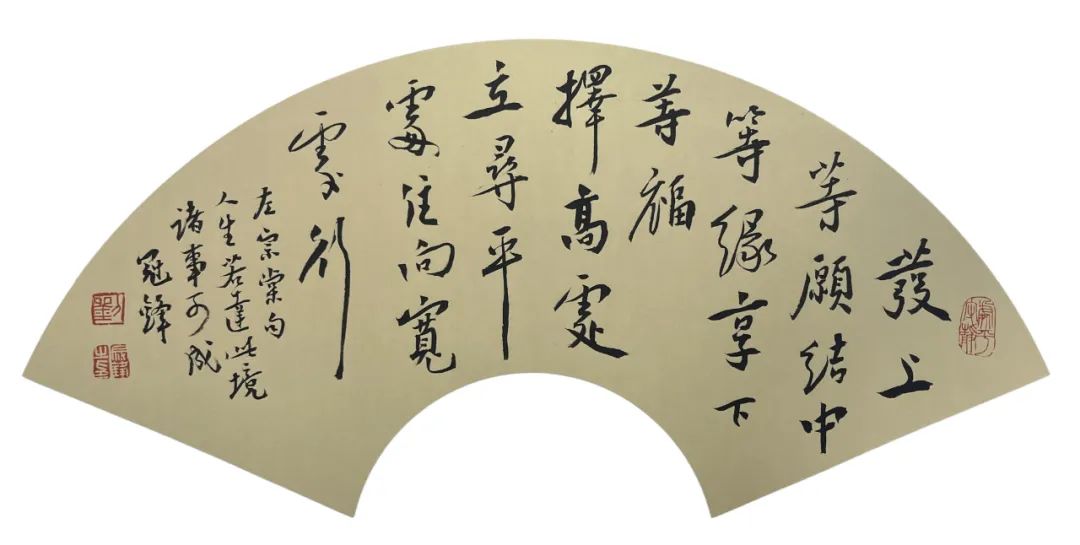 發上
等願結中
等緣享下
等福
擇高處
立尋平
處住向寬
處行
左宗棠句
人生若達此境
諸事可成
冠鋒